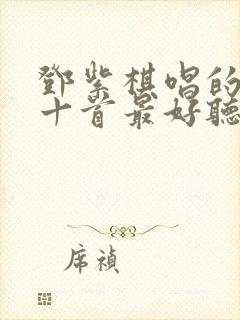 鄧紫棋唱的
十首最好聽
席禎